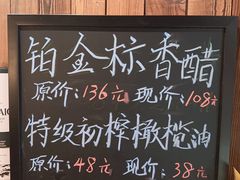 铂金标香醋
原价:136元 现价:108元
特级初榨橄榄油
原价:48元 现价:38元